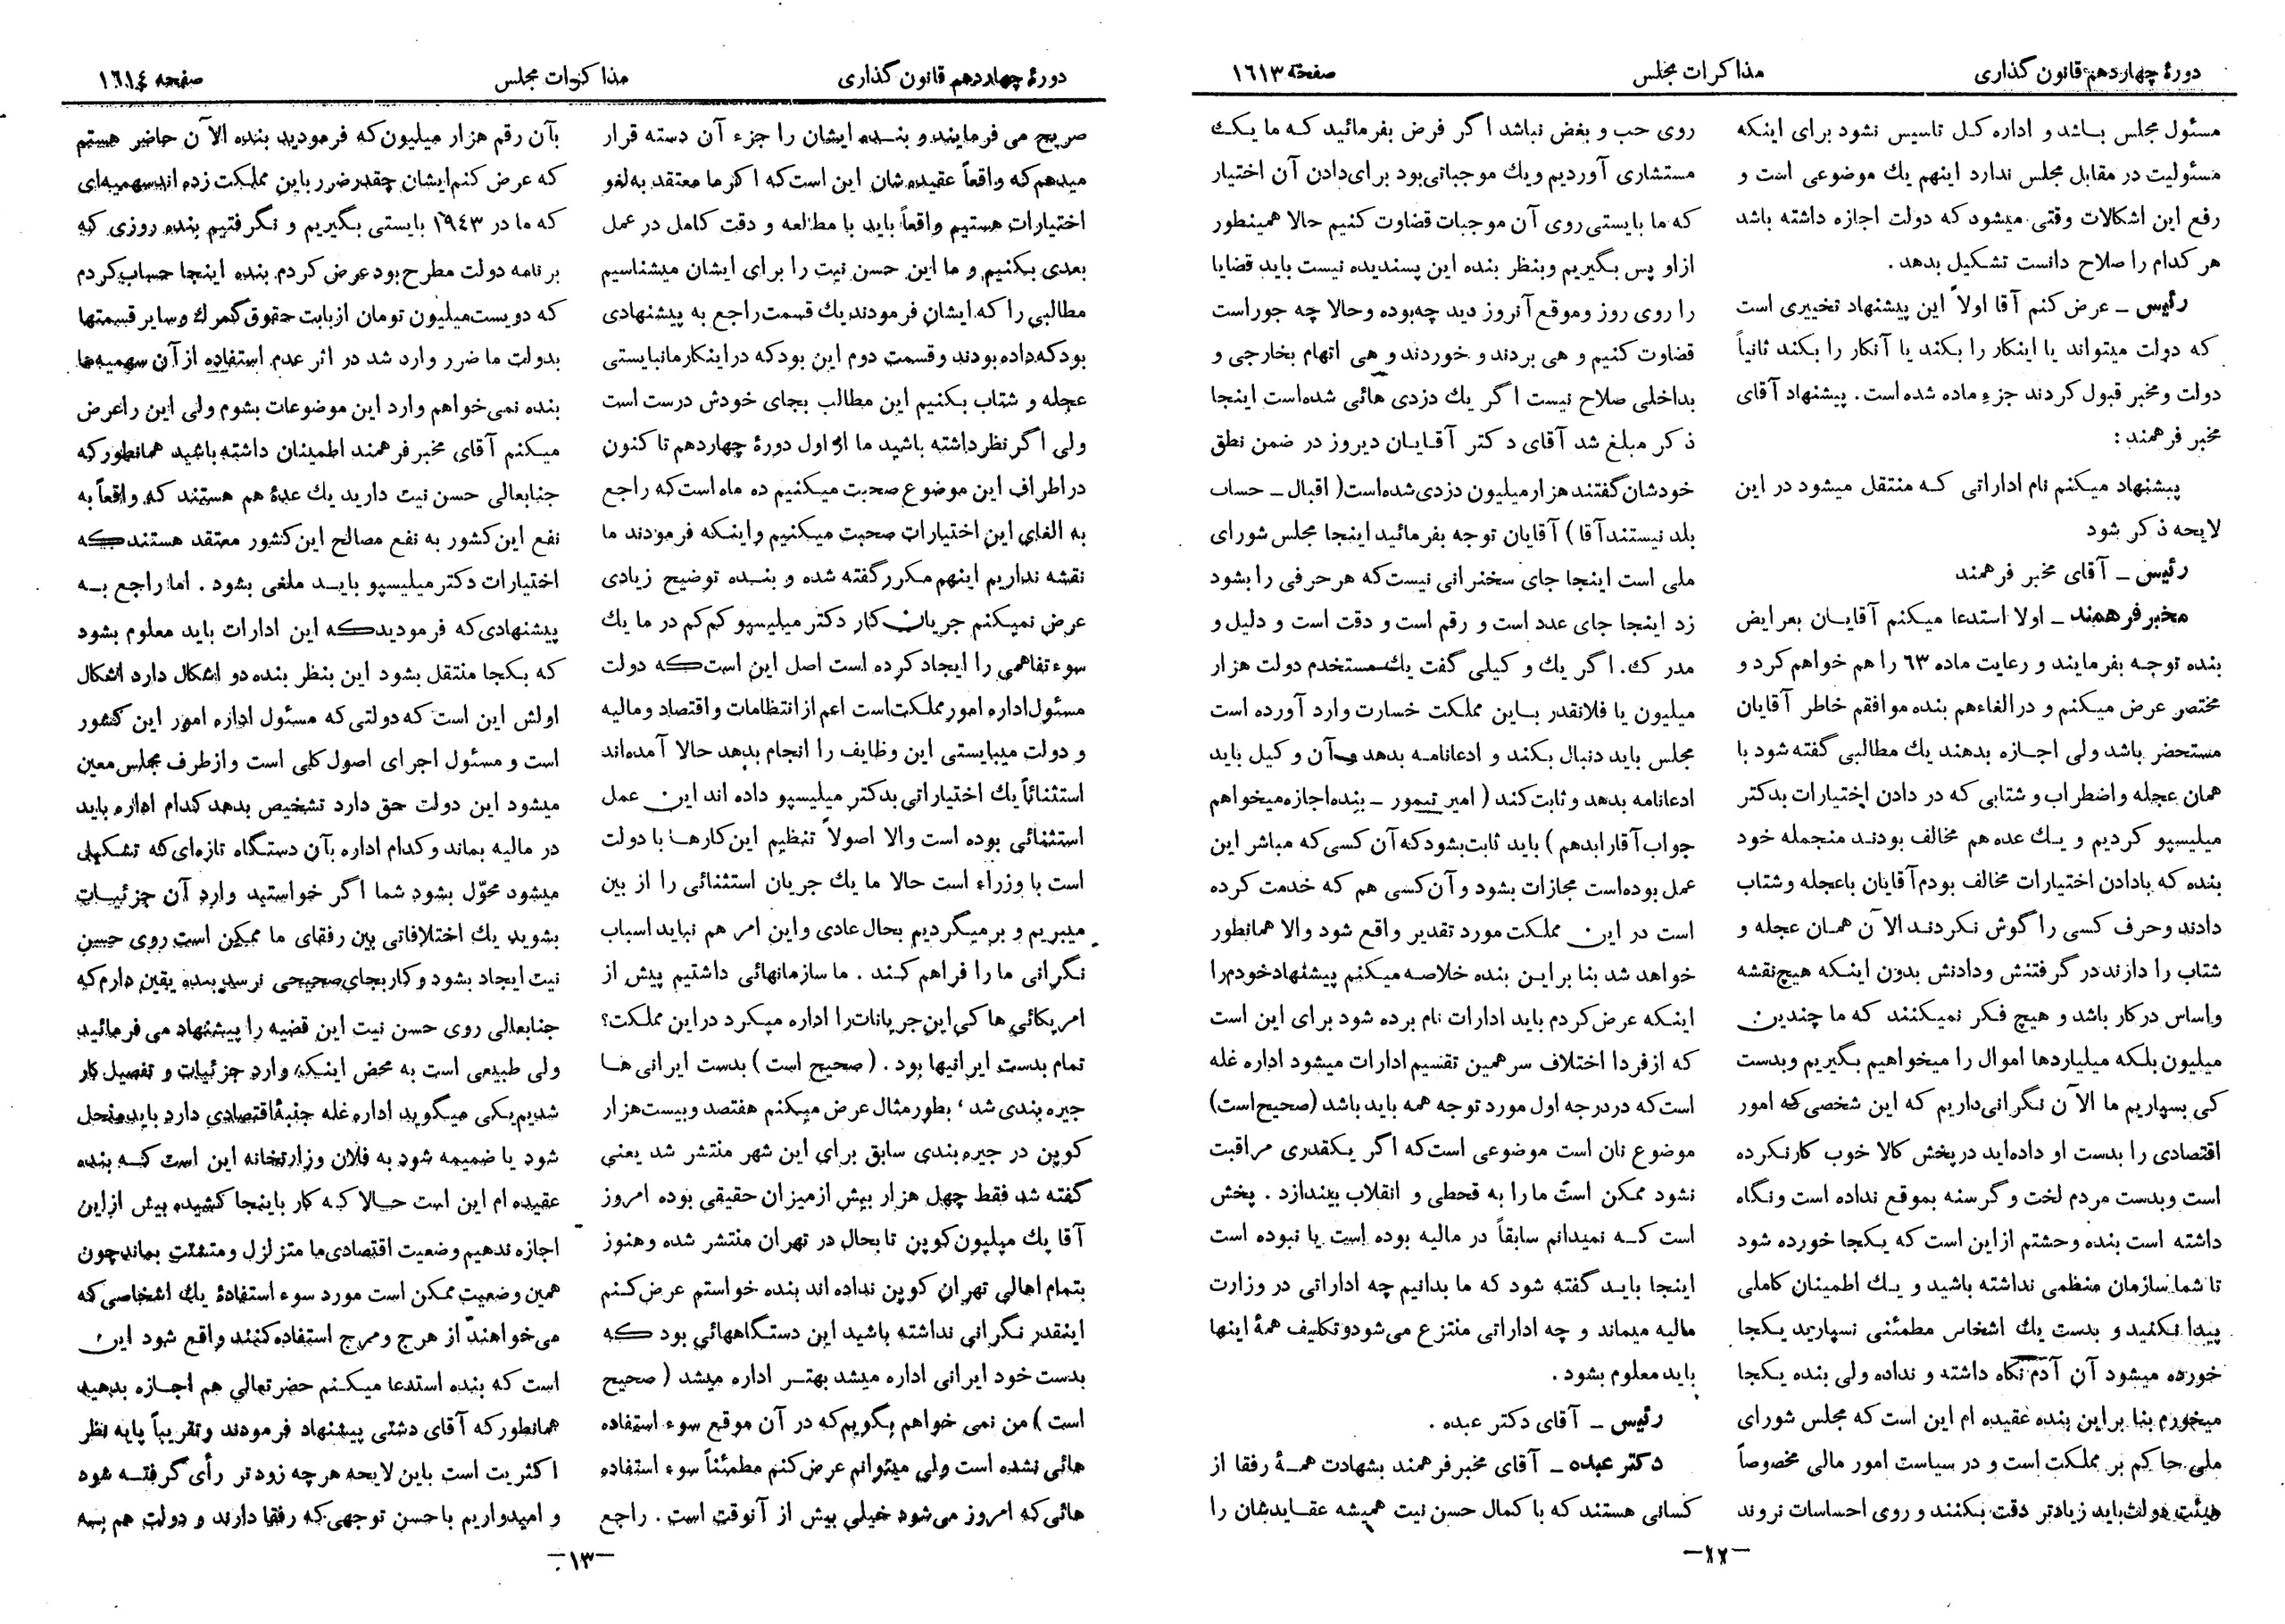 دورهٔ چهاردهم قانون گذاری
مذاکرات مجلس
صفحه ۱۶۱۳
مسئول مجلس باشد و اداره کل تاسیس نشود برای اینکه
مسئولیت در مقابل مجلس ندارد اینهم یك موضوعی است و
رفع این اشکالات وقتی میشود که دولت اجازه داشته باشد
هر کدام را صلاح دانست تشکیل بدهد .
رئیس ـ عرض کنم آقا اولاً این پیشنهاد تخییری است
که دولت میتواند یا اینکار را بکند یا آنکار را بکند ثانیاً
دولت ومخبر قبول کردند جزء ماده شده است . پیشنهاد آقای
مخبر فرهمند :
پیشنهاد میکنم نام اداراتی که منتقل میشود در این
لایحه ذکر شود
رئیس ـ آقای مخبر فرهمند
مخبر فرهمند ـ اولا استدعا میکنم آقایان بعرایض
بنده توجه بفرمایند و رعایت ماده ۶۳ را هم خواهم کرد و
مختصر عرض میکنم و در الغاءهم بنده موافقم خاطر آقایان
مستحضر باشد ولی اجازه بدهند یك مطالبی گفته شود با
همان عجله واضطراب و شتابی که در دادن اختیارات بدکتر
میلیسپو کردیم و یك عده هم مخالف بودند منجمله خود
بنده که بادادن اختیارات مخالف بودم آقایان باعجله وشتاب
دادند وحرف کسی را گوش نکردند الآن همان عجله و
شتاب را دارند در گرفتنش ودادنش بدون اینکه هیچ نقشه
واساس در کار باشد و هیچ فکر نمیکنند که ما چندین
میلیون بلکه میلیاردها اموال را میخواهیم بگیریم وبدست
کی بسپاریم ما الآن نگرانی داریم که این شخصی که امور
اقتصادی را بدست او داده‌اید در پخش کالا خوب کار نکرده
است وبدست مردم لخت و گرسنه بموقع نداده است ونگاه
داشته است بنده وحشتم از این است که یکجا خورده شود
تا شما سازمان منظمی نداشته باشید و یك اطمینان کاملی
پیدا نکنید و بدست یك اشخاص مطمئنی نسپارید یکجا
خورده میشود آن آدم نگاه داشته و نداده ولی بنده یکجا
میخورم بنا بر این بنده عقیده ام این است که مجلس شورای
ملی حاکم بر مملکت است و در سیاست امور مالی مخصوصاً
هیئت دولت باید زیادتر دقت بکنند و روی احساسات نروند
روی حب و بغض نباشد اگر فرض بفرمائید که ما یك
مستشاری آوردیم ویك موجباتی بود برای دادن آن اختیار
که ما بایستی روی آن موجبات قضاوت کنیم حالا همینطور
از او پس بگیریم وبنظر بنده این پسندیده نیست باید قضایا
را روی روز و موقع آنروز دید چه بوده وحالا چه جور است
قضاوت کنیم و هی بردند و خوردند و هی اتهام بخارجی و
بداخلی صلاح نیست اگر یك دزدی هائی شده‌است اینجا
ذکر مبلغ شد آقای دکتر آقایان دیروز در ضمن نطق
خودشان گفتند هزار میلیون دزدی شده‌است ( اقبال ـ حساب
بلد نیستند آقا ) آقایان توجه بفرمائید اینجا مجلس شورای
ملی است اینجا جای سخنرانی نیست که هر حرفی را بشود
زد اینجا جای عدد است و رقم است و دقت است و دلیل و
مدرك. اگر یك و کیلی گفت یك مستخدم دولت هزار
میلیون یا فلانقدر باین مملکت خسارت وارد آورده است
مجلس باید دنبال بکند و ادعانامه بدهد و آن و کیل باید
ادعانامه بدهد و ثابت کند ( امیر تیمور ـ بنده اجازه میخواهم
جواب آقا را بدهم ) باید ثابت بشود که آن کسی که مباشر این
عمل بوده‌است مجازات بشود و آن کسی هم که خدمت کرده
است در این مملکت مورد تقدیر واقع شود والا همانطور
خواهد شد بنا بر این بنده خلاصه میکنم پیشنهاد خودم را
اینکه عرض کردم باید ادارات نام برده شود برای این است
که از فردا اختلاف سر همین تقسیم ادارات میشود اداره غله
است که در درجه اول مورد توجه همه باید باشد (صحیح است)
موضوع نان است موضوعی است که اگر یکقدری مراقبت
نشود ممکن است ما را به قحطی و انقلاب بیندازد . پخش
است که نمیدانم سابقاً در مالیه بوده است یا نبوده است
اینجا باید گفته شود که ما بدانیم چه اداراتی در وزارت
مالیه میماند و چه اداراتی منتزع می‌شود و تکلیف همهٔ اینها
باید معلوم بشود .
رئیس ـ آقای دکتر عبده .
دکتر عبده ـ آقای مخبر فرهمند بشهادت همهٔ رفقا از
کسانی هستند که با کمال حسن نیت همیشه عقایدشان را
ـ۱۲ـ
دورهٔ چهاردهم قانون گذاری
مذاکرات مجلس
صفحه ۱۶۱۴
صریح می فرمایند و بنده ایشان را جزء آن دسته قرار
میدهم که واقعاً عقیده شان این است که اکر ما معتقد به لغو
اختیارات هستیم واقعاً باید با مطالعه و دقت کامل در عمل
بعدی بکنیم و ما این حسن نیت را برای ایشان میشناسیم
مطالبی را که ایشان فرمودند یك قسمت راجع به پیشنهادی
بود که داده بودند و قسمت دوم این بود که در اینکار ما نبایستی
عجله و شتاب بکنیم این مطالب بجای خودش درست است
ولی اگر نظر داشته باشید ما از اول دورهٔ چهاردهم تا کنون
در اطراف این موضوع صحبت میکنیم ده ماه است که راجع
به الغای این اختیارات صحبت میکنیم و اینکه فرمودند ما
نقشه نداریم اینهم مکرر گفته شده و بنده توضیح زیادی
عرض نمیکنم جریان کار دکتر میلیسپو کم کم در ما یك
سوء تفاهمی را ایجاد کرده است اصل این است که دولت
مسئول اداره امور مملکت است اعم از انتظامات و اقتصاد و مالیه
و دولت میبایستی این وظایف را انجام بدهد حالا آمده‌اند
استثنائاً یك اختیاراتی بدکتر میلیسپو داده اند این عمل
استثنائی بوده است والا اصولاً تنظیم این کارها با دولت
است با وزراء است حالا ما یك جریان استثنائی را از بین
میبریم و بر میگردیم بحال عادی و این امر هم نباید اسباب
نگرانی ما را فراهم کند . ما سازمانهائی داشتیم پیش از
امریکائی ها کی این جریانات را اداره میکرد در این مملکت؟
تمام بدست ایرانیها بود . ( صحیح است ) بدست ایرانی ها
جیره بندی شد ، بطور مثال عرض میکنم هفتصد و بیست هزار
کوپن در جیره بندی سابق برای این شهر منتشر شد یعنی
گفته شد فقط چهل هزار بیش از میزان حقیقی بوده امروز
آقا یك میلیون کوپن تا بحال در تهران منتشر شده وهنوز
بتمام اهالی تهران کوپن نداده اند بنده خواستم عرض کنم
اینقدر نگرانی نداشته باشید این دستگاههائی بود که
بدست خود ایرانی اداره میشد بهتر اداره میشد ( صحیح
است ) من نمی خواهم بگویم که در آن موقع سوء استفاده
هائی نشده است ولی میتوانم عرض کنم مطمئناً سوء استفاده
هائی که امروز می‌شود خیلی بیش از آنوقت است . راجع
بآن رقم هزار میلیون که فرمودید بنده الآن حاضر هستم
که عرض کنم ایشان چقدر ضرر باین مملکت زده اند سهمیه‌ای
که ما در ۱۹۴۳ بایستی بگیریم و نگرفتیم بنده روزی که
برنامه دولت مطرح بود عرض کردم بنده اینجا حساب کردم
که دویست میلیون تومان از بابت حقوق گمرك و سایر قسمتها
بدولت ما ضرر وارد شد در اثر عدم استفاده از آن سهمیه‌ها
بنده نمی خواهم وارد این موضوعات بشوم ولی این را عرض
میکنم آقای مخبر فرهمند اطمینان داشته باشید همانطور که
جنابعالی حسن نیت دارید یك عدهٔ هم هستند که واقعاً به
نفع این کشور به نفع مصالح این کشور معتقد هستند که
اختیارات دکتر میلیسپو باید ملغی بشود . اما راجع به
پیشنهادی که فرمودید که این ادارات باید معلوم بشود
که بکجا منتقل بشود این بنظر بنده دو اشکال دارد اشکال
اولش این است که دولتی که مسئول اداره امور این کشور
است و مسئول اجرای اصول کلی است و از طرف مجلس معین
میشود این دولت حق دارد تشخیص بدهد کدام اداره باید
در مالیه بماند و کدام اداره بآن دستگاه تازه‌ای که تشکیل
میشود محوّل بشود شما اگر خواستید وارد آن جزئیات
بشوید یك اختلافاتی بین رفقای ما ممکن است روی حسن
نیت ایجاد بشود و کار بجای صحیحی نرسد بنده یقین دارم که
جنابعالی روی حسن نیت این قضیه را پیشنهاد می فرمائید
ولی طبیعی است به محض اینکه وارد جزئیات و تفصیل کار
شدیم یکی میگوید اداره غله جنبهٔ اقتصادی دارد باید منحل
شود یا ضمیمه شود به فلان وزارتخانه این است که بنده
عقیده ام این است حالا که کار باینجا کشیده بیش از این
اجازه ندهیم وضعیت اقتصادی ما متزلزل و متشتت بماند چون
همین وضعیت ممکن است مورد سوء استفادهٔ یك اشخاصی که
می خواهند از هرج و مرج استفاده کنند واقع شود این
است که بنده استدعا میکنم حضرتعالی هم اجازه بدهید
همانطور که آقای دشتی پیشنهاد فرمودند و تقریباً پایه نظر
اکثریت است باین لایحه هر چه زودتر رأی گرفته شود
و امیدواریم با حسن توجهی که رفقا دارند و دولت هم به
ـ۱۳ـ